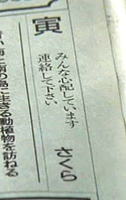 寅
みんな心配しています
連絡して下さい
さくら
南の島に生きる動植物を訪ねる